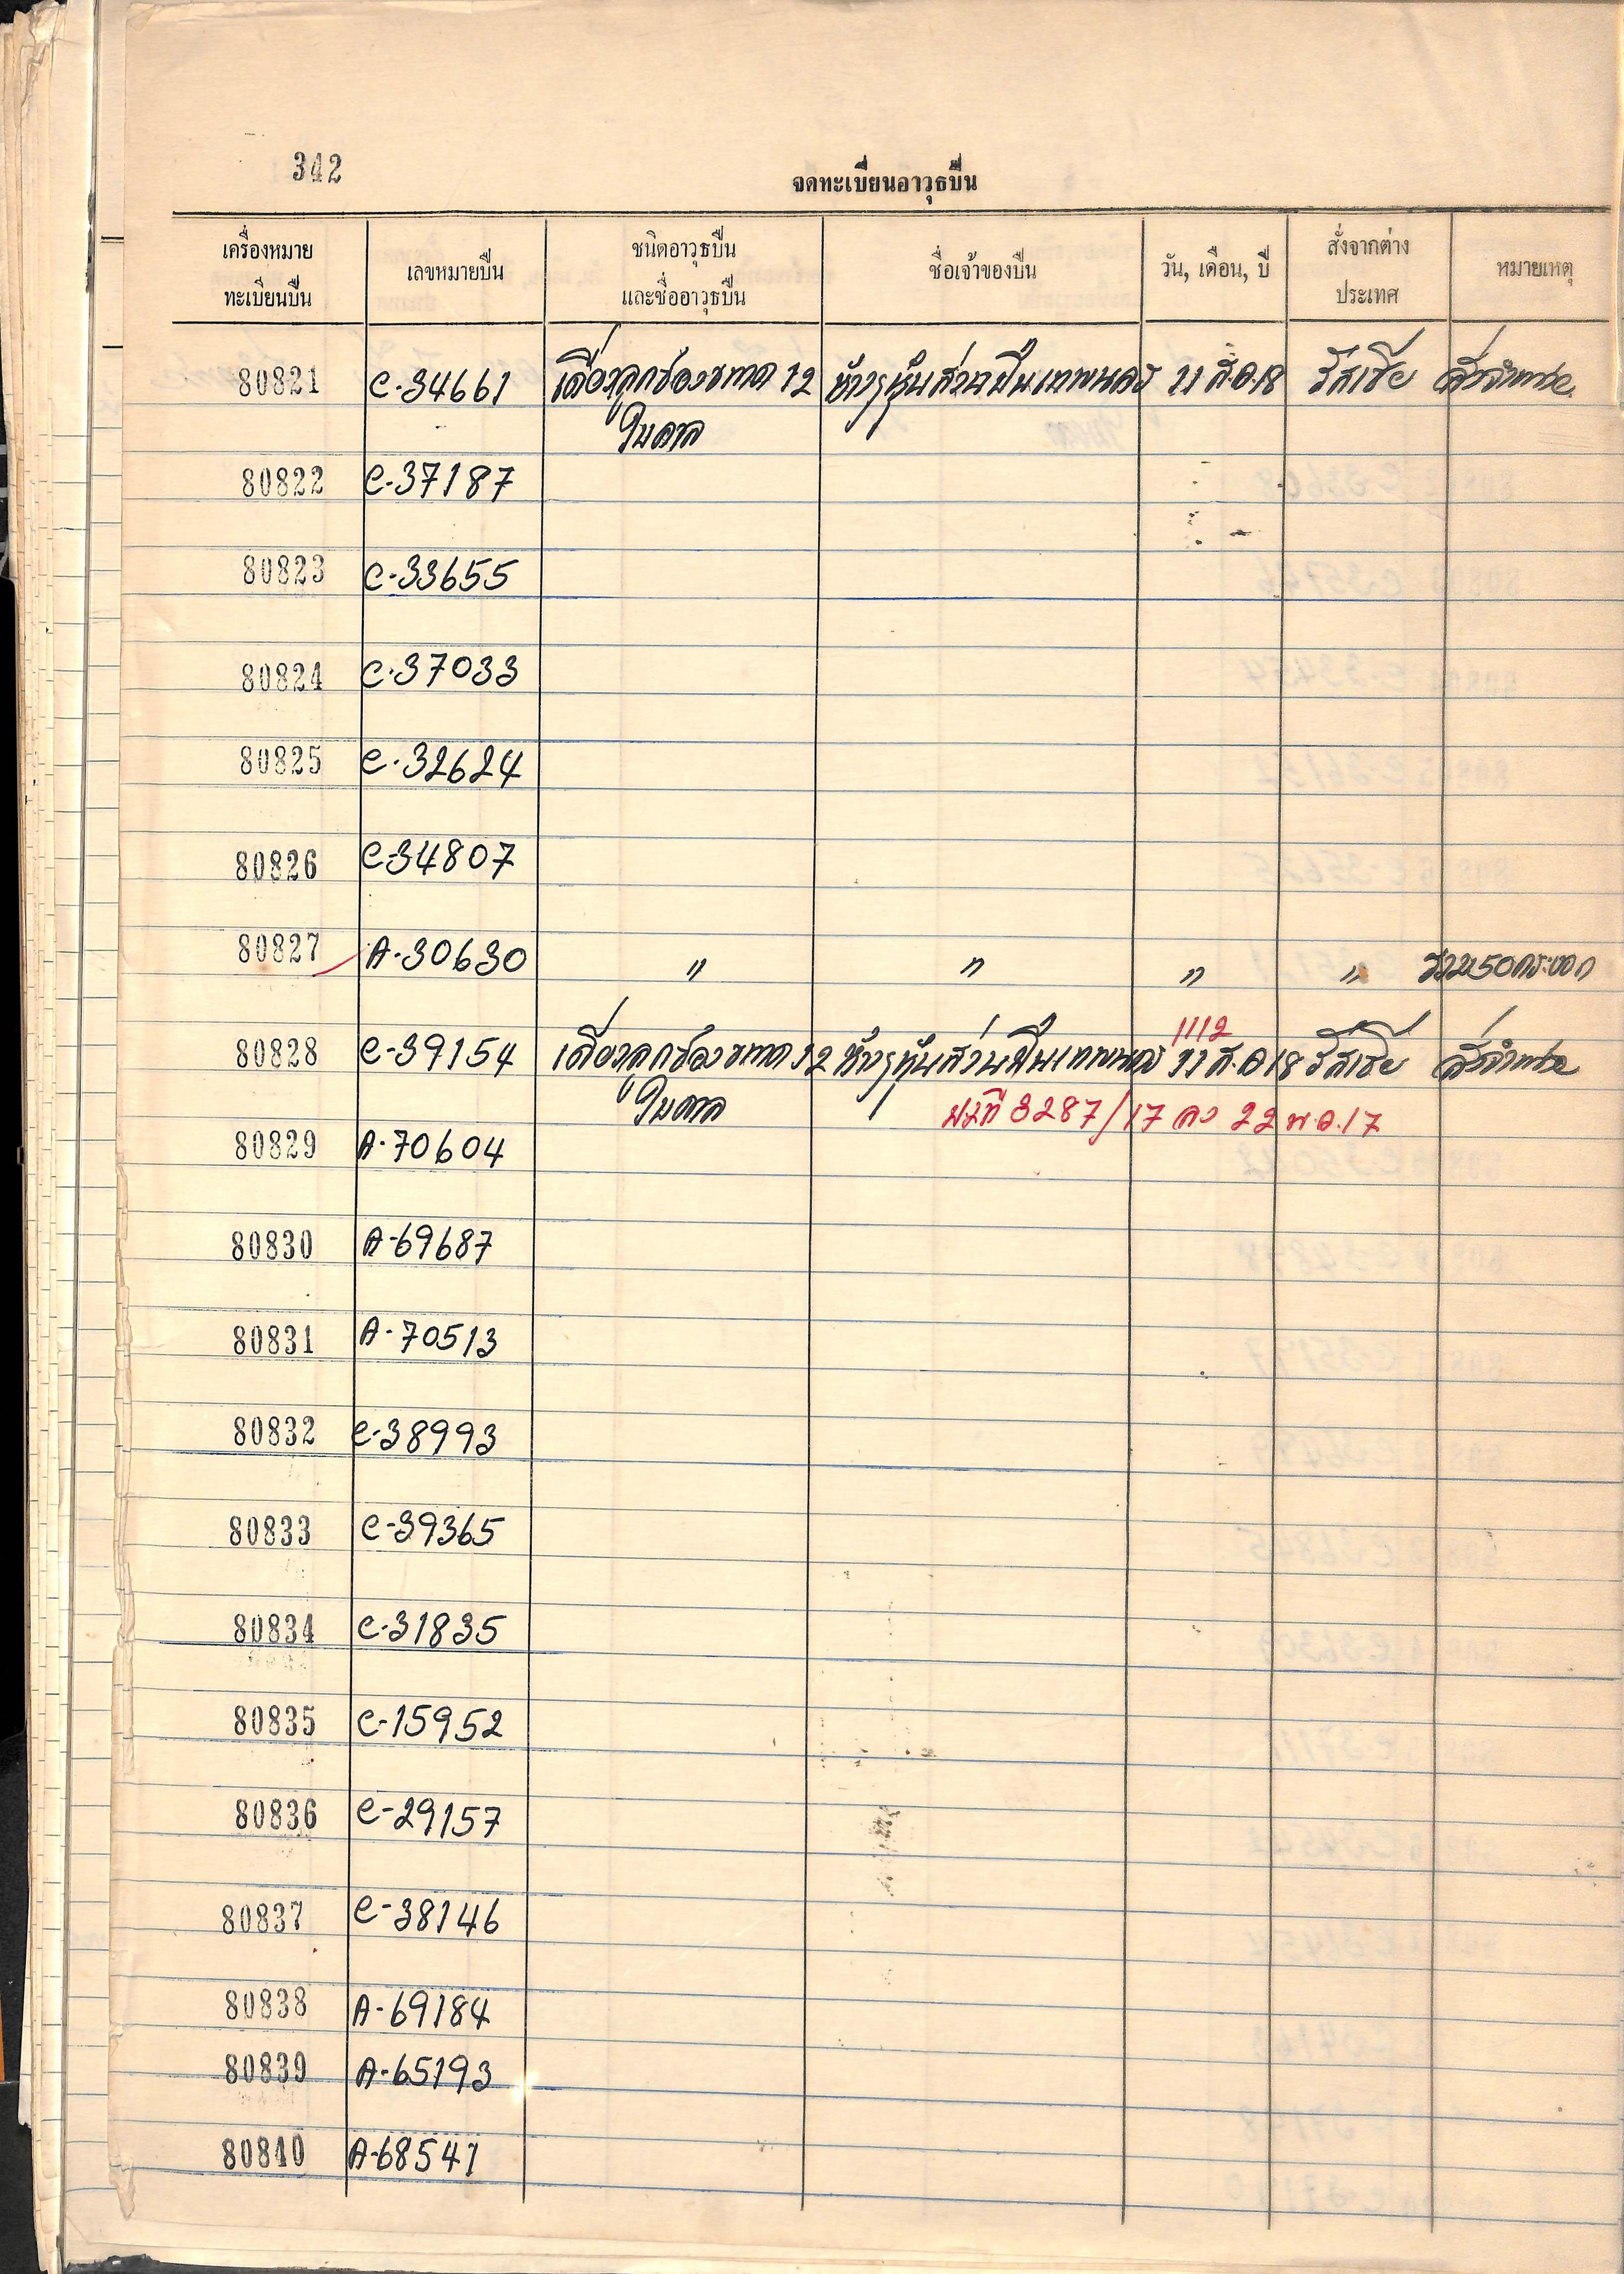 342
จดทะเบียนอาวุธปืน
เครื่องหมาย
ทะเบียนปืน
เลขหมายปืน
ชนิดอาวุธปืน
และชื่ออาวุธปืน
ชื่อเจ้าของปืน
วัน, เดือน, ปี
สั่งจากต่าง
ประเทศ
หมายเหตุ
80821 C-34661 เดี่ยวลูกซองขนาด 12 ห้างหุ้นส่วนปืนเทพนคร 11 ส.ค 18 รัสเซีย สั่งจำหน่าย
ไบคาล
80822 C-37187
80823 C-33655
80824 C-37033
80825 C-32624
80826 C-34807
80827 A-30630 " " " " รวม 50 กระบอก
1112
80828 C-39154 เดี่ยวลูกซองขนาด 12 ห้างหุ้นส่วนปืนเทพนคร 11 ส.ค 18 รัสเซีย สั่งจำหน่าย
ไบคาล 3287/17 ลว 22 พ.ค. 17
80829 A-70604
80830 A-69687
80831 A-70513
80832 C-38993
80833 C-39365
80834 C-31835
80835 C-15952
80836 C-29157
80837 C-38146
80838 A-69184
80839 A-65193
80840 A-68541